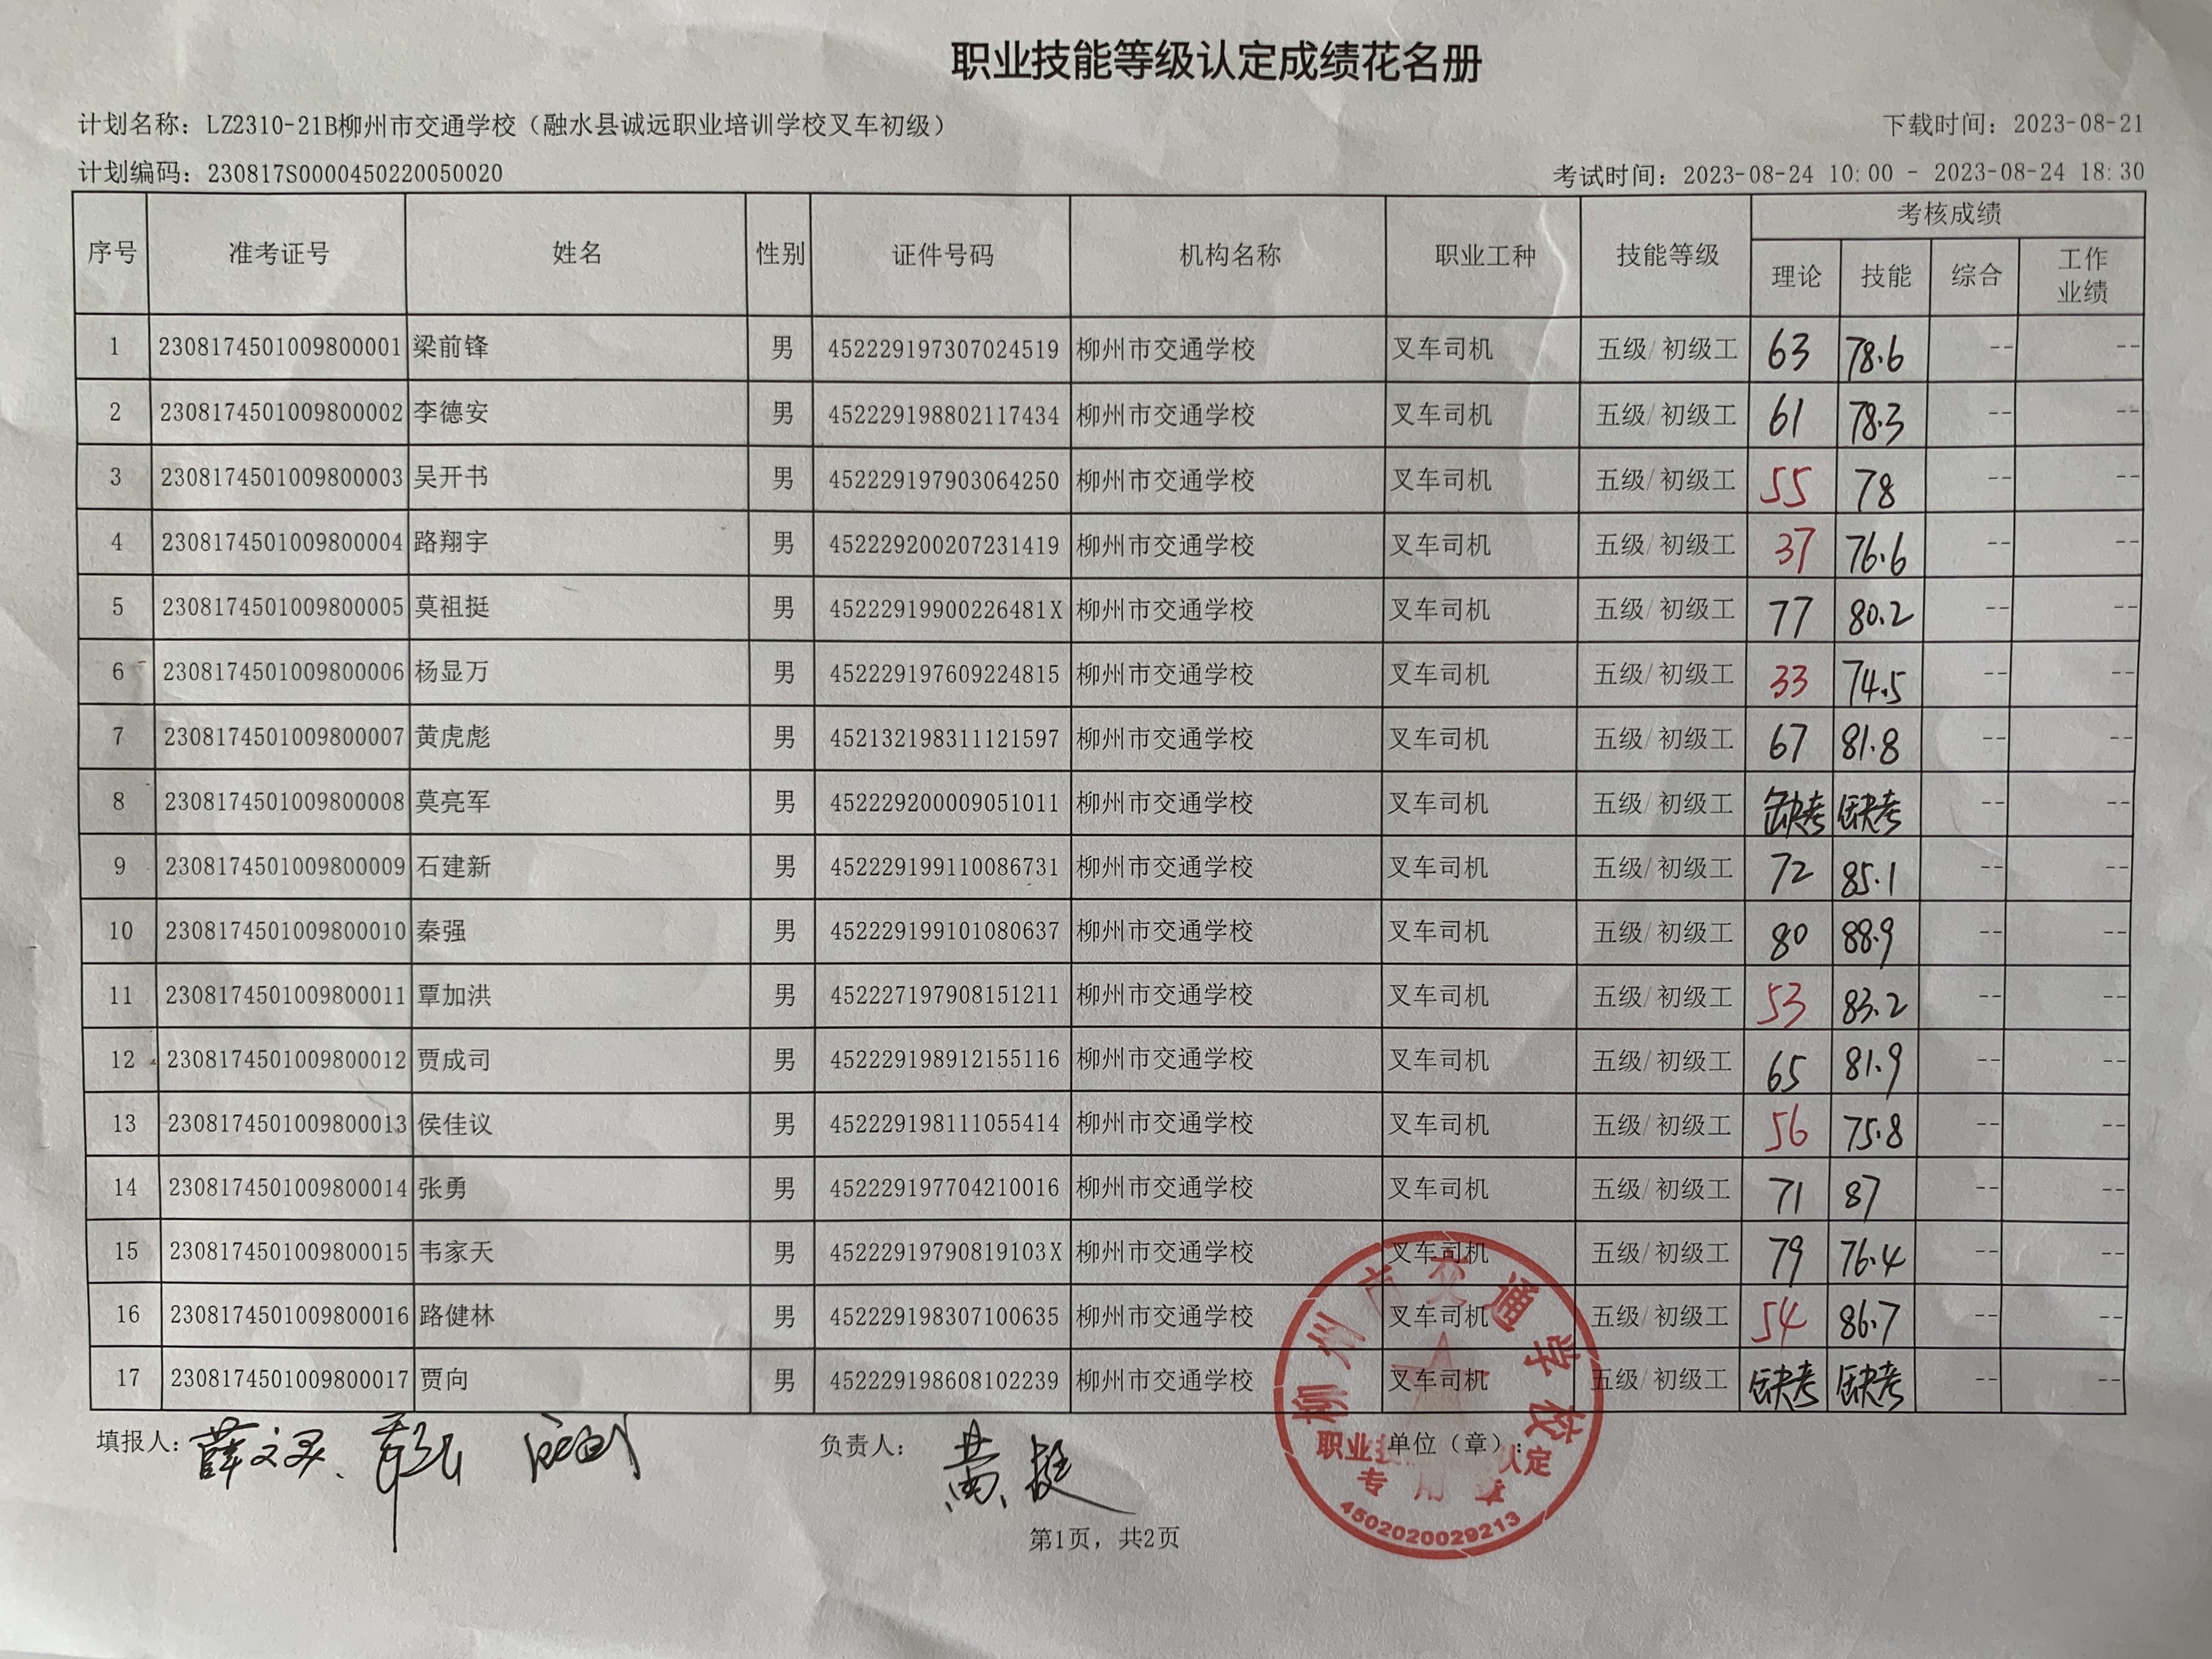 职业技能等级认定成绩花名册
计划名称：LZ2310-21B柳州市交通学校（融水县诚远职业培训学校叉车初级） 下载时间：2023-08-21
计划编码：230817S0000450220050020 考试时间：2023-08-24 10:00 - 2023-08-24 18:30
序号 准考证号 姓名 性别 证件号码 机构名称 职业工种 技能等级 考核成绩
理论 技能 综合 工作业绩
1 2308174501009800001 梁前锋 男 452229197307024519 柳州市交通学校 叉车司机 五级/初级工 63 78.6 -- --
2 2308174501009800002 李德安 男 452229198802117434 柳州市交通学校 叉车司机 五级/初级工 61 78.3 -- --
3 2308174501009800003 吴开书 男 452229197903064250 柳州市交通学校 叉车司机 五级/初级工 55 78 -- --
4 2308174501009800004 路翔宇 男 452229200207231419 柳州市交通学校 叉车司机 五级/初级工 37 76.6 -- --
5 2308174501009800005 莫祖挺 男 45222919900226481X 柳州市交通学校 叉车司机 五级/初级工 77 80.2 -- --
6 2308174501009800006 杨显万 男 452229197609224815 柳州市交通学校 叉车司机 五级/初级工 33 74.5 -- --
7 2308174501009800007 黄虎彪 男 452132198311121597 柳州市交通学校 叉车司机 五级/初级工 67 81.8 -- --
8 2308174501009800008 莫亮军 男 452229200009051011 柳州市交通学校 叉车司机 五级/初级工 缺考 缺考 -- --
9 2308174501009800009 石建新 男 452229199110086731 柳州市交通学校 叉车司机 五级/初级工 72 85.1 -- --
10 2308174501009800010 秦强 男 452229199101080637 柳州市交通学校 叉车司机 五级/初级工 80 88.9 -- --
11 2308174501009800011 覃加洪 男 452227197908151211 柳州市交通学校 叉车司机 五级/初级工 53 83.2 -- --
12 2308174501009800012 贾成司 男 452229198912155116 柳州市交通学校 叉车司机 五级/初级工 65 81.9 -- --
13 2308174501009800013 侯佳议 男 452229198111055414 柳州市交通学校 叉车司机 五级/初级工 56 75.8 -- --
14 2308174501009800014 张勇 男 452229197704210016 柳州市交通学校 叉车司机 五级/初级工 71 87 -- --
15 2308174501009800015 韦家天 男 45222919790819103X 柳州市交通学校 叉车司机 五级/初级工 79 76.4 -- --
16 2308174501009800016 路健林 男 452229198307100635 柳州市交通学校 叉车司机 五级/初级工 54 86.7 -- --
17 2308174501009800017 贾向 男 452229198608102239 柳州市交通学校 叉车司机 五级/初级工 缺考 缺考 -- --
填报人： 负责人：黄挺 单位（章）：
柳州市交通学校
职业技 认定
专用章
4502020029213
第1页，共2页